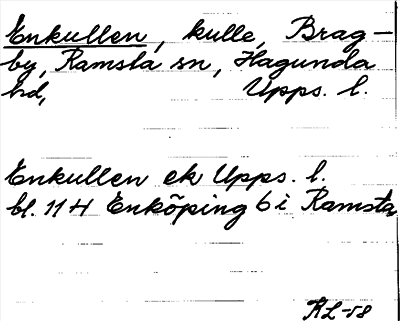 Enkullen, kulle, Brag-
by, Ramsta sn, Hagunda
hd, Upps. l.
Enkullen ek Upps. l.
bl. 11 H Enköping 6 i Ramsta
RL-58